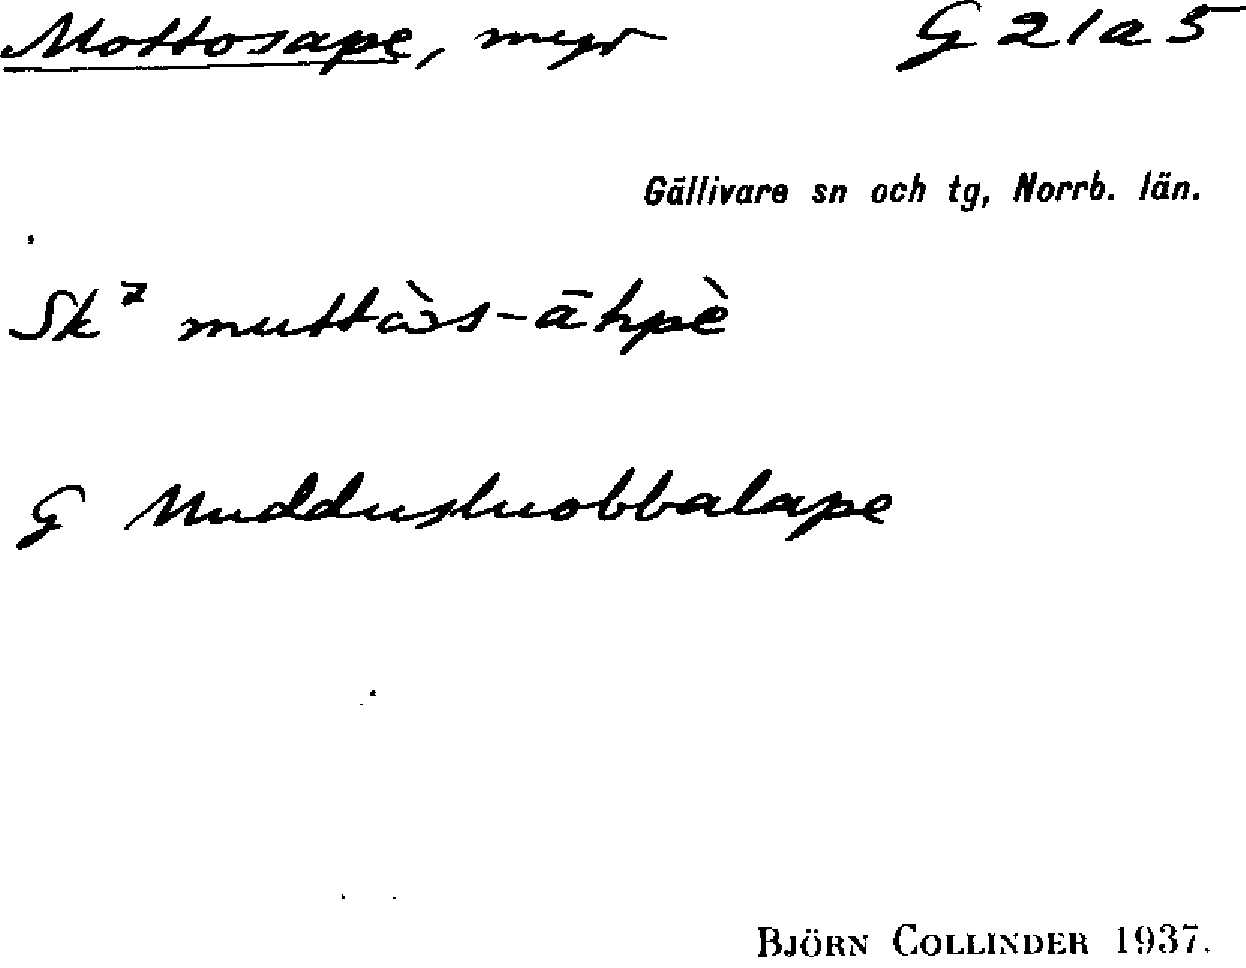 Mottosape, myr G 21a5
Gällivare sn och tg, Norrb. län.
Sk⁷ muttὼs-āhpè
G Muddusluobbalape
BJÖRN COLLINDER 1937.